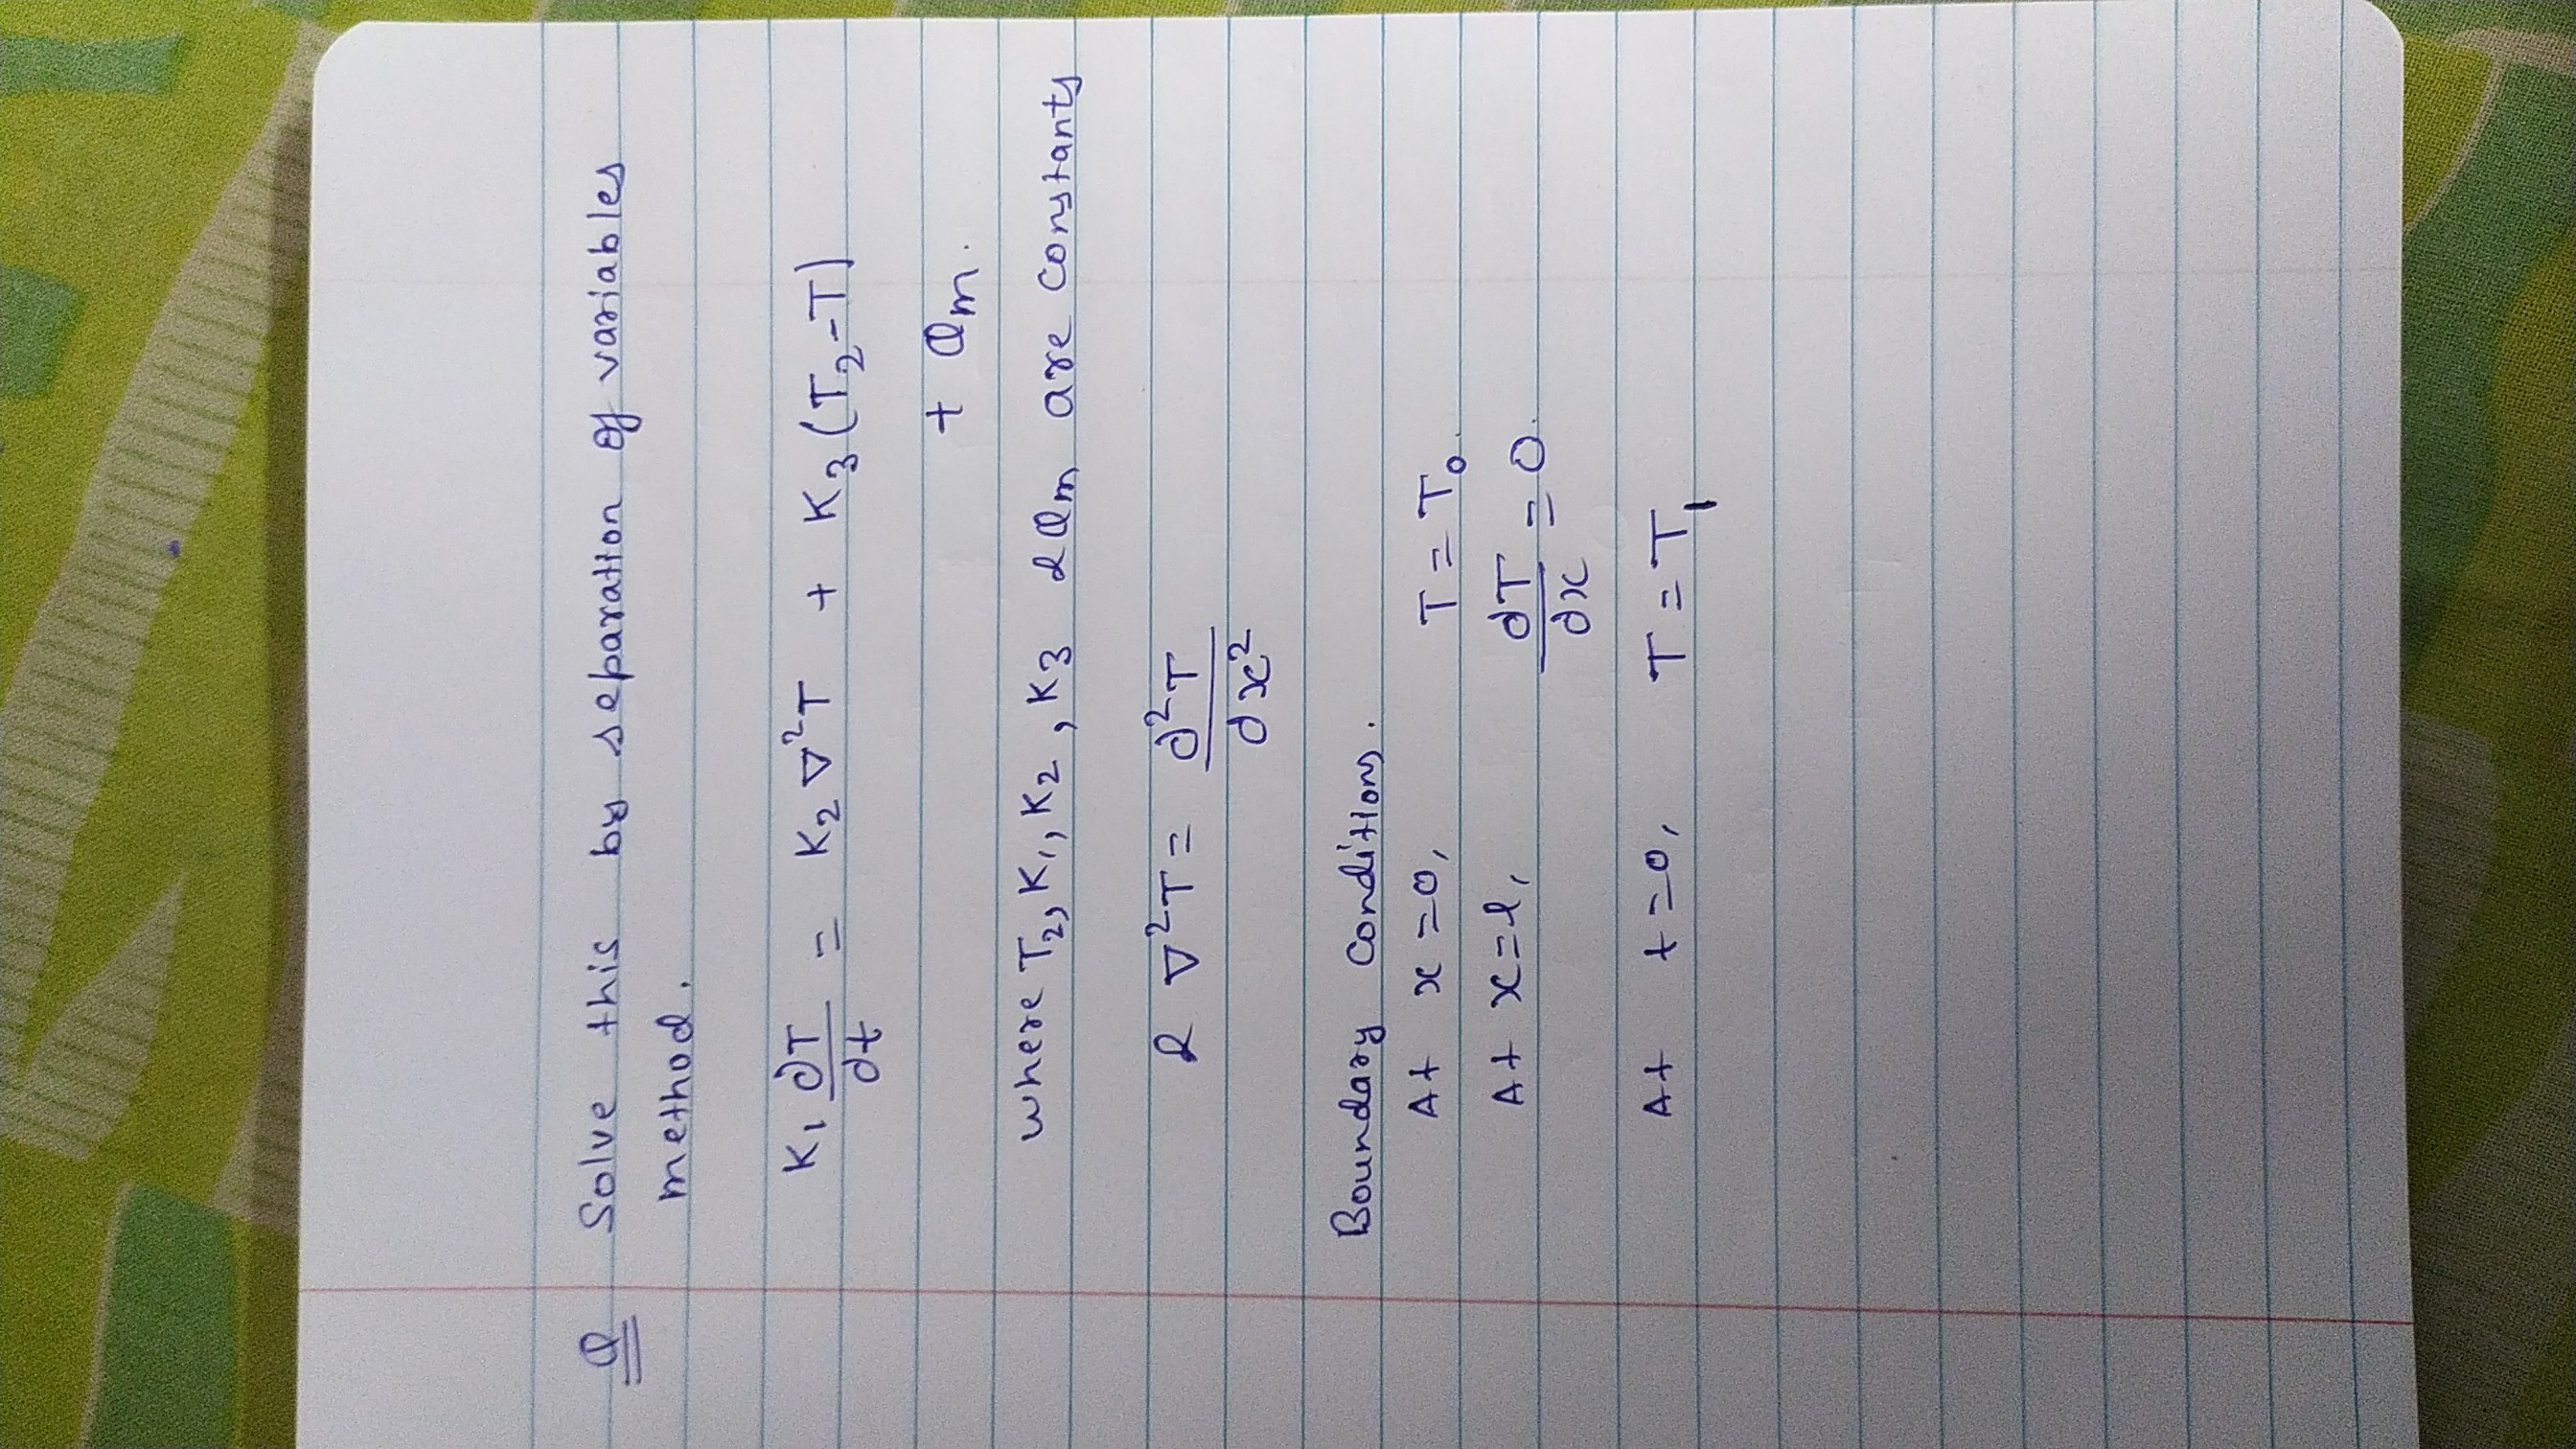 Q Solve this by separation of variables
method.
K₁ ∂T/∂t = K₂ ∇²T + K₃(T₂-T)
+ Qm.
where T₂, K₁, K₂, K₃ & Qm are constants
& ∇²T = ∂²T/∂x²
Boundary Conditions.
At x=0, T=T₀.
At x=l, ∂T/∂x = 0.
At t=0, T=T₁